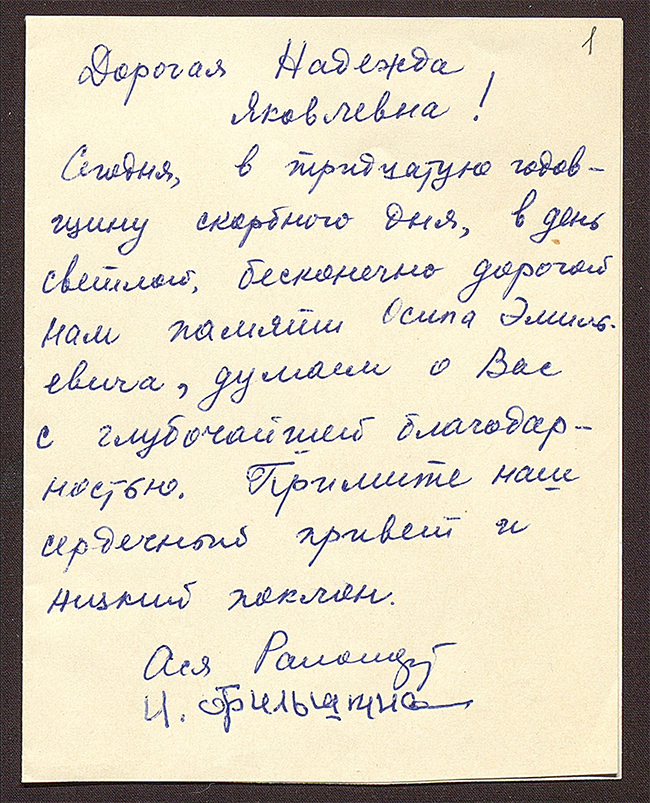 1
Дорогая Надежда
Яковлевна!
Сегодня, в тридцатую годов-
щину скорбного дня, в день
светлой, бесконечно дорогой
нам памяти Осипа Эмиль-
евича, думаем о Вас
с глубочайшей благодар-
ностью. Примите наш
сердечный привет и
низкий поклон.
Ася
И.